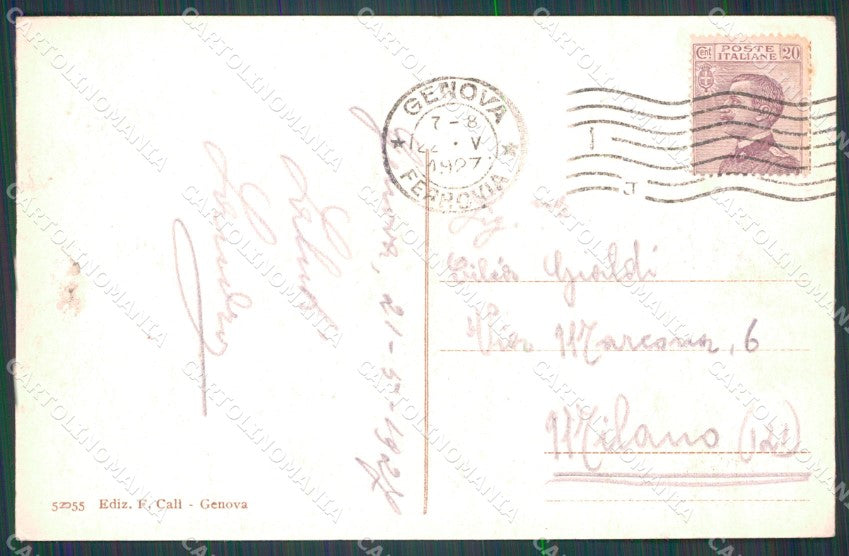 Cent POSTE ITALIANE 20
GENOVA
7-8
22 · V
1927
FERROVIA
Genova, 21-5-1927
Saluti
Gualdi
Via Marcona, 6
Milano (21)
52055 Ediz. F. Calì - Genova
CARTOLINOMANIA